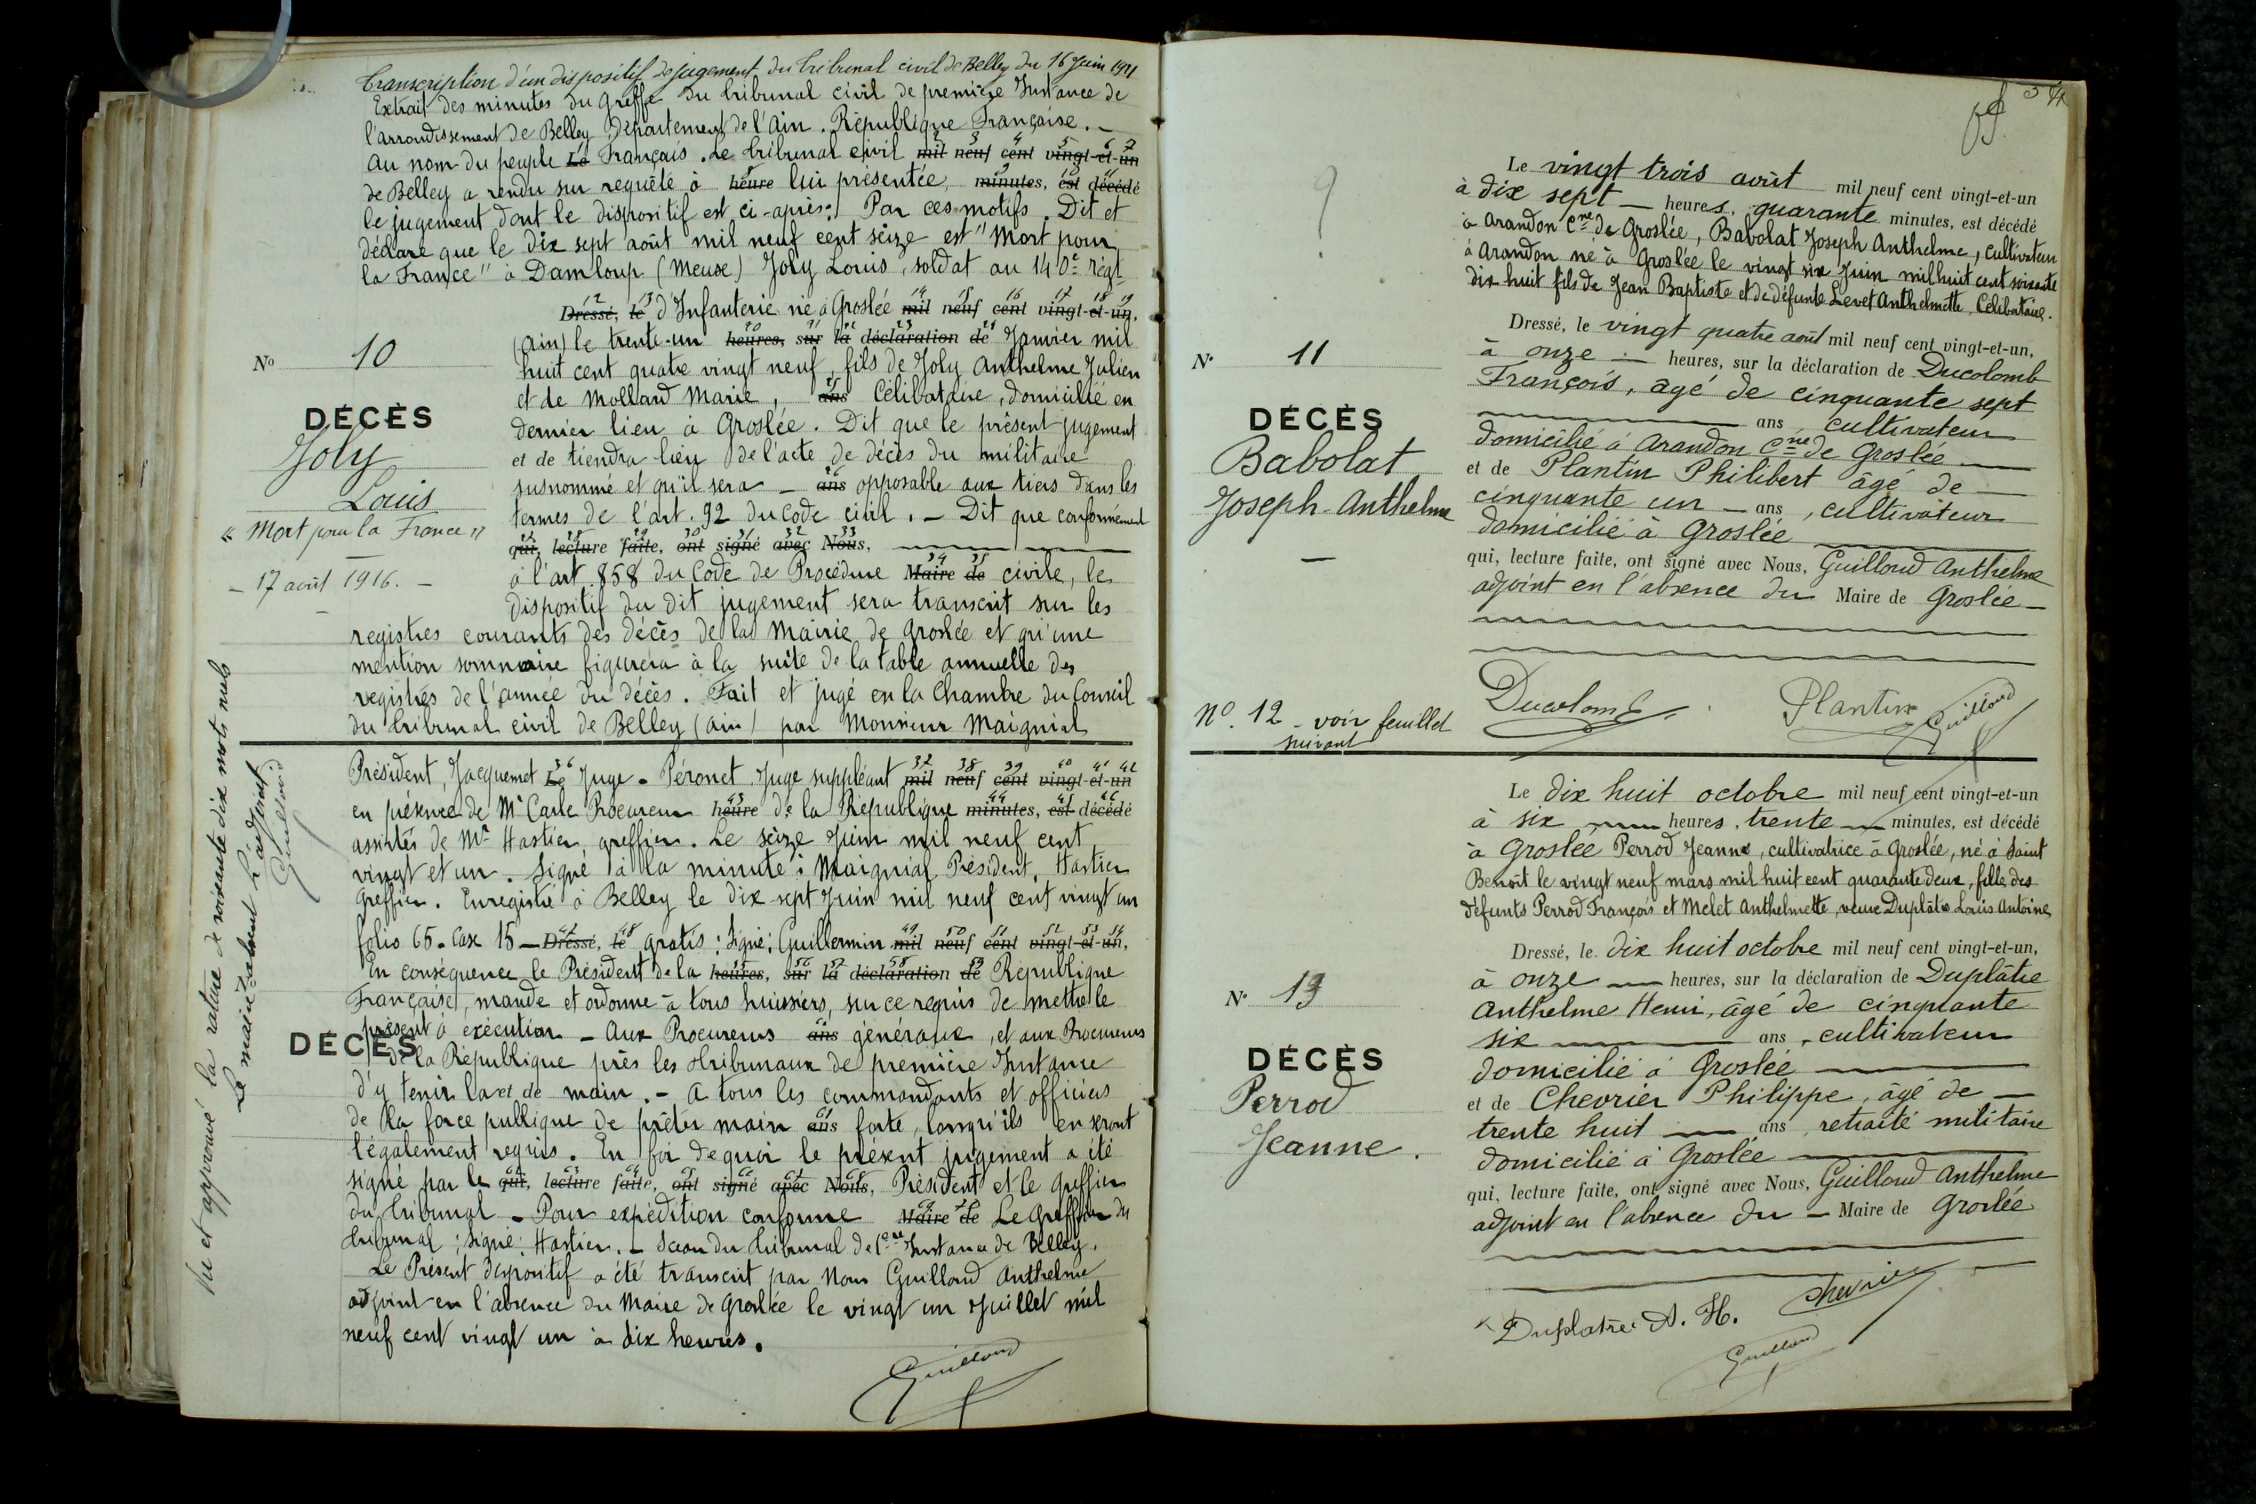 Transcription d'un dispositif de jugement du tribunal civil de Belley du 16 Juin 1921
Extrait des minutes du Greffe du tribunal civil de première Instance de
l'arrondissement de Belley département de l'Ain. République Française. _
Au nom du peuple Le Français. Le tribunal civil mil neuf cent vingt-et-un
de Belley a rendu sur requête à heure lui présentée, minutes, est décédé
le jugement dont le dispositif est ci-après: Par ces motifs. Dit et
déclare que le dix sept août mil neuf cent seize est "Mort pour
la France" à Damloup (Meuse) Joly Louis, soldat au 140e Régt
Dressé, le d'Infanterie né à Groslée mil neuf cent vingt-et-un,
(Ain) le trente-un heures, sur la déclaration de Janvier mil
huit cent quatre vingt neuf, fils de Joly Anthelme Julien
et de Mollard Marie, ans Célibataire, domicilié en
dernier lieu à Groslée. Dit que le présent jugement
et de tiendra lieu de l'acte de décès du militaire
susnommé et qu'il sera _ ans opposable aux tiers dans les
termes de l'art. 92 du Code civil. _ Dit que conformément
qui, lecture faite, ont signé avec Nous,
à l'art. 858 du Code de Procédure Maire de civile, le
dispositif du dit jugement sera transcrit sur les
registres courants des décès de la Mairie de Groslée et qu'une
mention sommaire figurera à la suite de la table annuelle des
registres de l'année du décès. Fait et jugé en la Chambre du Conseil
du tribunal civil de Belley (Ain) par Monsieur Maignial
No 10
DÉCÈS
Joly
Louis
"Mort pour la France"
_ 17 août 1916. _
Président, Jacquemet Le Juge. Péronet Juge suppléant mil neuf cent vingt-et-un
en présence de Mr Carle Procureur heure de la République minutes, est décédé
assistés de Mr Hastier, greffier. Le seize Juin mil neuf cent
vingt et un. Signé à la minute: Maignial Président, Hastier
Greffier. Enregistré à Belley le dix sept Juin mil neuf cent vingt un
folio 65. Case 15 _ Dressé, le gratis: Signé: Guillermin mil neuf cent vingt-et-un,
En conséquence le Président de la heures, sur la déclaration de République
Française, mande et ordonne à tous huissiers, sur ce requis de mettre le
présent à exécution _ Aux Procureurs ans généraux, et aux Procureurs
DÉCÈS
de la République près les tribunaux de première Instance
d'y tenir la et de main. _ A tous les commandants et officiers
de la force publique de prêter main ans forte, lorsqu'ils en seront
légalement requis. En foi de quoi le présent jugement a été
signé par le qui, lecture faite, ont signé avec Nous, Président et le Greffier
du tribunal _ Pour expédition conforme Maire de Le Greffier du
tribunal: Signé: Hastier. _ Sceau du tribunal de 1ere Instance de Belley.
Le Présent dispositif a été transcrit par Nous Guilloud Anthelme
adjoint en l'absence du Maire de Groslée le vingt un Juillet mil
neuf cent vingt un à dix heures.
Guilloud
Vu et approuvé la rature de soixante dix mots nuls
Le maire absent l'adjoint
Guilloud
54
Le vingt trois août mil neuf cent vingt-et-un
à dix sept _ heures, quarante minutes, est décédé
à Arandon Cne de Groslée, Babolat Joseph Anthelme, Cultivateur
à Arandon né à Groslée le vingt six Juin mil huit cent soixante
dix huit fils de Jean Baptiste et de défunte Levet Anthelmette, Célibataire.
Dressé, le vingt quatre août mil neuf cent vingt-et-un,
à onze _ heures, sur la déclaration de Ducolomb
François, agé de cinquante sept
ans, cultivateur
domicilié à Arandon Cne de Groslée
et de Plantin Philibert âgé de
cinquante un _ ans, cultivateur
domicilié à Groslée
qui, lecture faite, ont signé avec Nous, Guilloud Anthelme
adjoint en l'absence du Maire de Groslée _
Ducolomb Plantin Guilloud
N° 11
DÉCÈS
Babolat
Joseph-Anthelme
_
No. 12 _ voir feuillet
suivant
Le dix huit octobre mil neuf cent vingt-et-un
à six heures, trente minutes, est décédé
à Groslée Perrod Jeanne, cultivatrice à Groslée, né à Saint
Benoît le vingt neuf mars mil huit cent quarante deux, fille des
défunts Perrod François et Melet Anthelmette, veuve Duplâtre Louis Antoine
Dressé, le dix huit octobre mil neuf cent vingt-et-un,
à onze heures, sur la déclaration de Duplâtre
Anthelme Henri, âgé de cinquante
six ans, cultivateur
domicilié à Groslée
et de Chevrier Philippe, âgé de _
trente huit ans, retraité militaire
domicilié à Groslée
qui, lecture faite, ont signé avec Nous, Guilloud Anthelme
adjoint en l'absence du _ Maire de Groslée
Duplatre A. H. Chevrier
Guilloud
N° 13
DÉCÈS
Perrod
Jeanne.